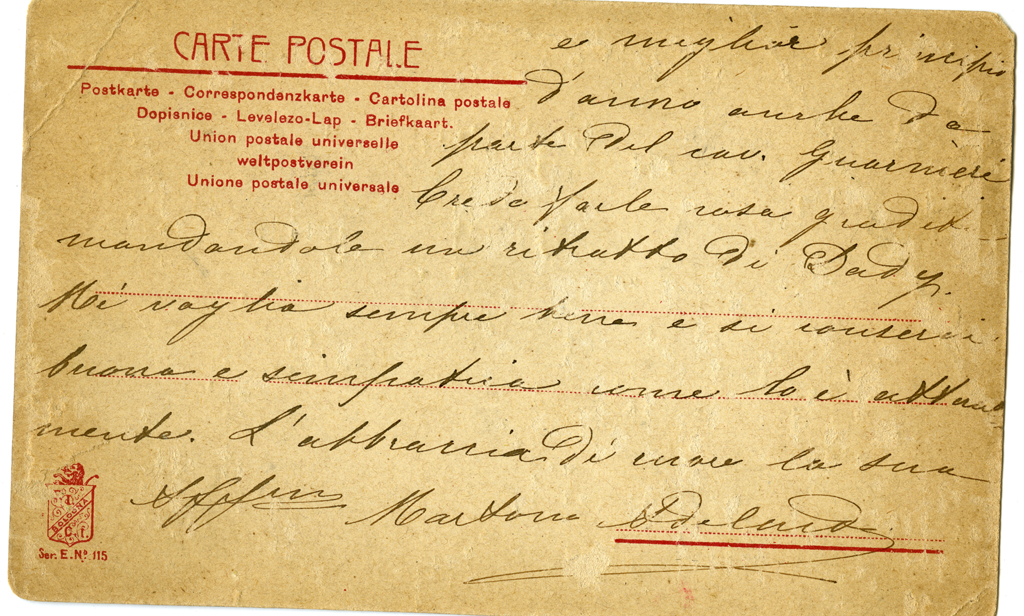 CARTE POSTALE
Postkarte - Correspondenzkarte - Cartolina postale
Dopisnice - Levelezo-Lap - Briefkaart.
Union postale universelle
weltpostverein
Unione postale universale
e miglior principio
d'anno anche da
parte del cav. Guarnieri
Credo farle cosa gradit
mandandole un ritratto di Dady.
Mi voglia sempre bene e si conservi
buona e simpatica come lo è attual
mente. L'abbraccia di cuore la sua
Aff
Martona
BOLOGNA
Ser. E. Nº. 115